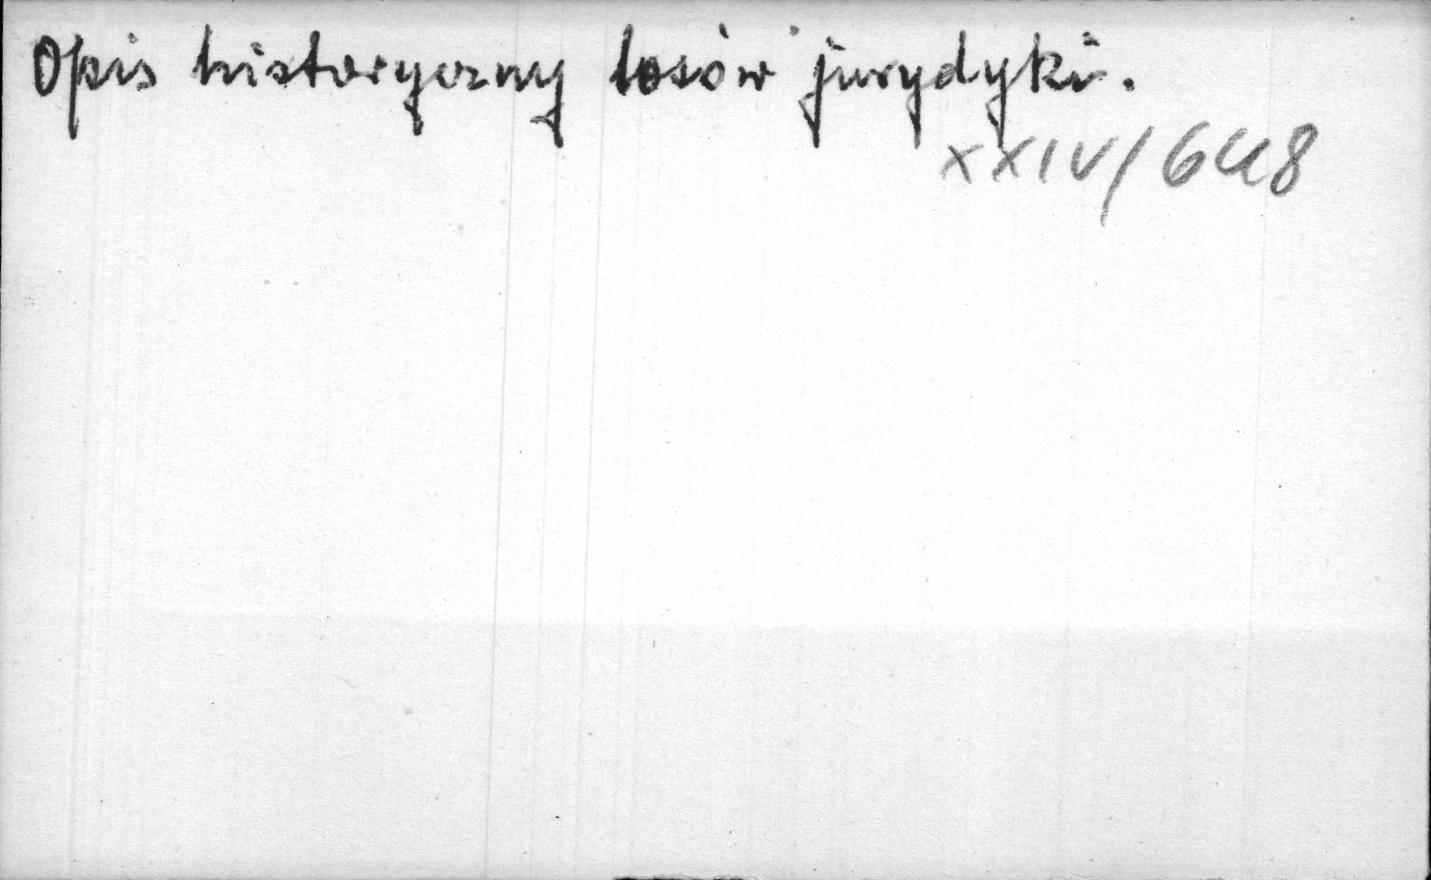 Opis historyczny losów jurydyki.
XXIV/648